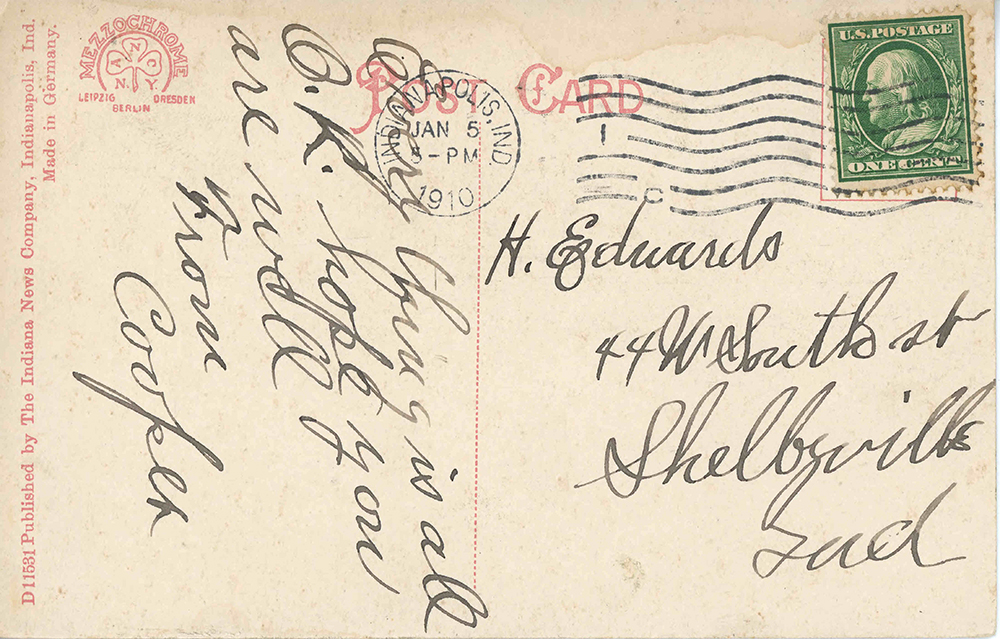 D11531 Published by The Indiana News Company, Indianapolis, Ind.
Made in Germany.
MEZZOCHROME
A N C
N Y.
LEIPZIG DRESDEN
BERLIN
POST CARD
INDIANAPOLIS, IND.
JAN 5
5-PM
1910
C
U.S. POSTAGE
ONE CENT
Every thing is all
O.K. hope you
are well
From
Cooper
H. Edwards
44 W South st
Shelbyville
Ind